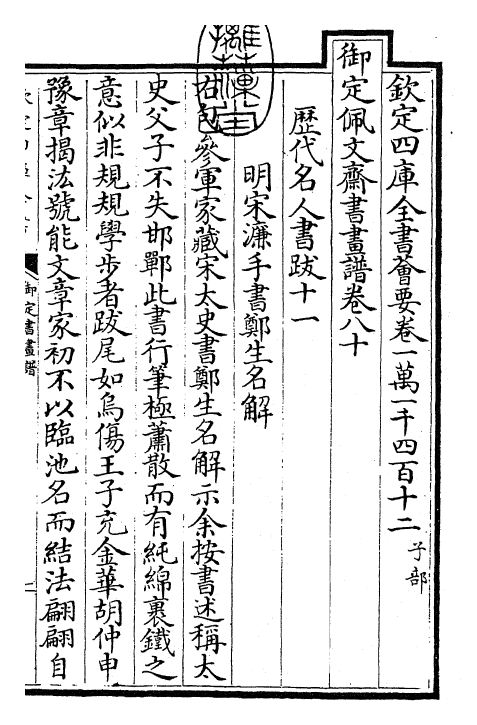 欽定四庫全書薈要卷一萬一千四百十二 子部
御定佩文齋書畫譜卷八十
歷代名人書跋十一
明宋濂手書鄭生名解
右包參軍家藏宋太史書鄭生名解示余按書述稱太
史父子不失邯鄲此書行筆極蕭散而有純綿裹鐵之
意似非規規學步者跋尾如烏傷王子充金華胡仲申
豫章揭法號能文章家初不以臨池名而結法翩翩自
御定書畫譜